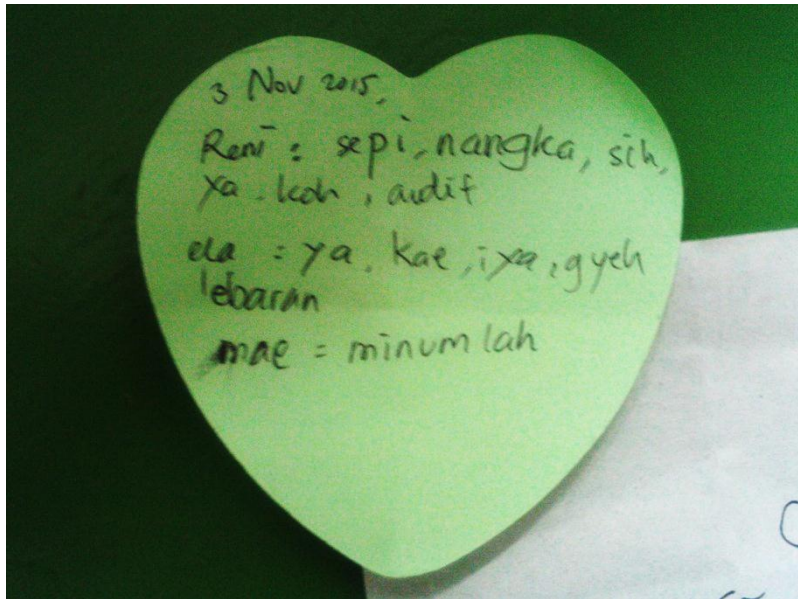 3 Nov 2015,
Reni : sepi, nangka, sih,
ya. koh, audit
ela : ya, kae, iya, gyeh
lebaran
mae = minum lah